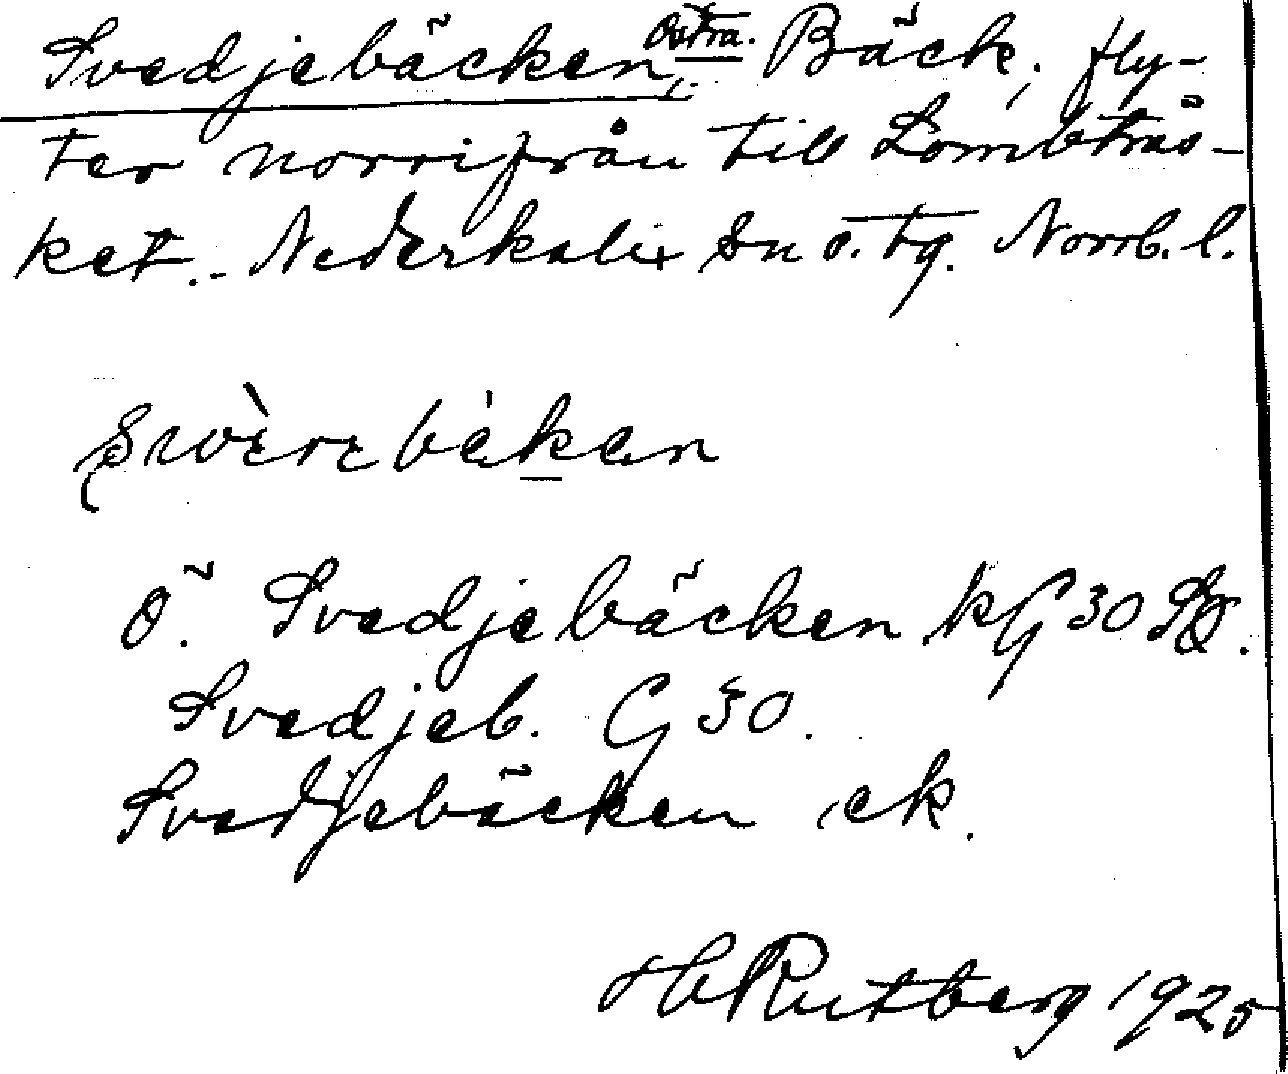 Svedjebäcken, Östra. Bäck; fly-
ter norrifrån till Lombträs-
ket. - Nederkalix sn o. tg. Norrb. l.
Ö. Svedjebäcken kG 30
Svedjeb. G 30.
Svedjebäcken ek.
H Rutberg 1925